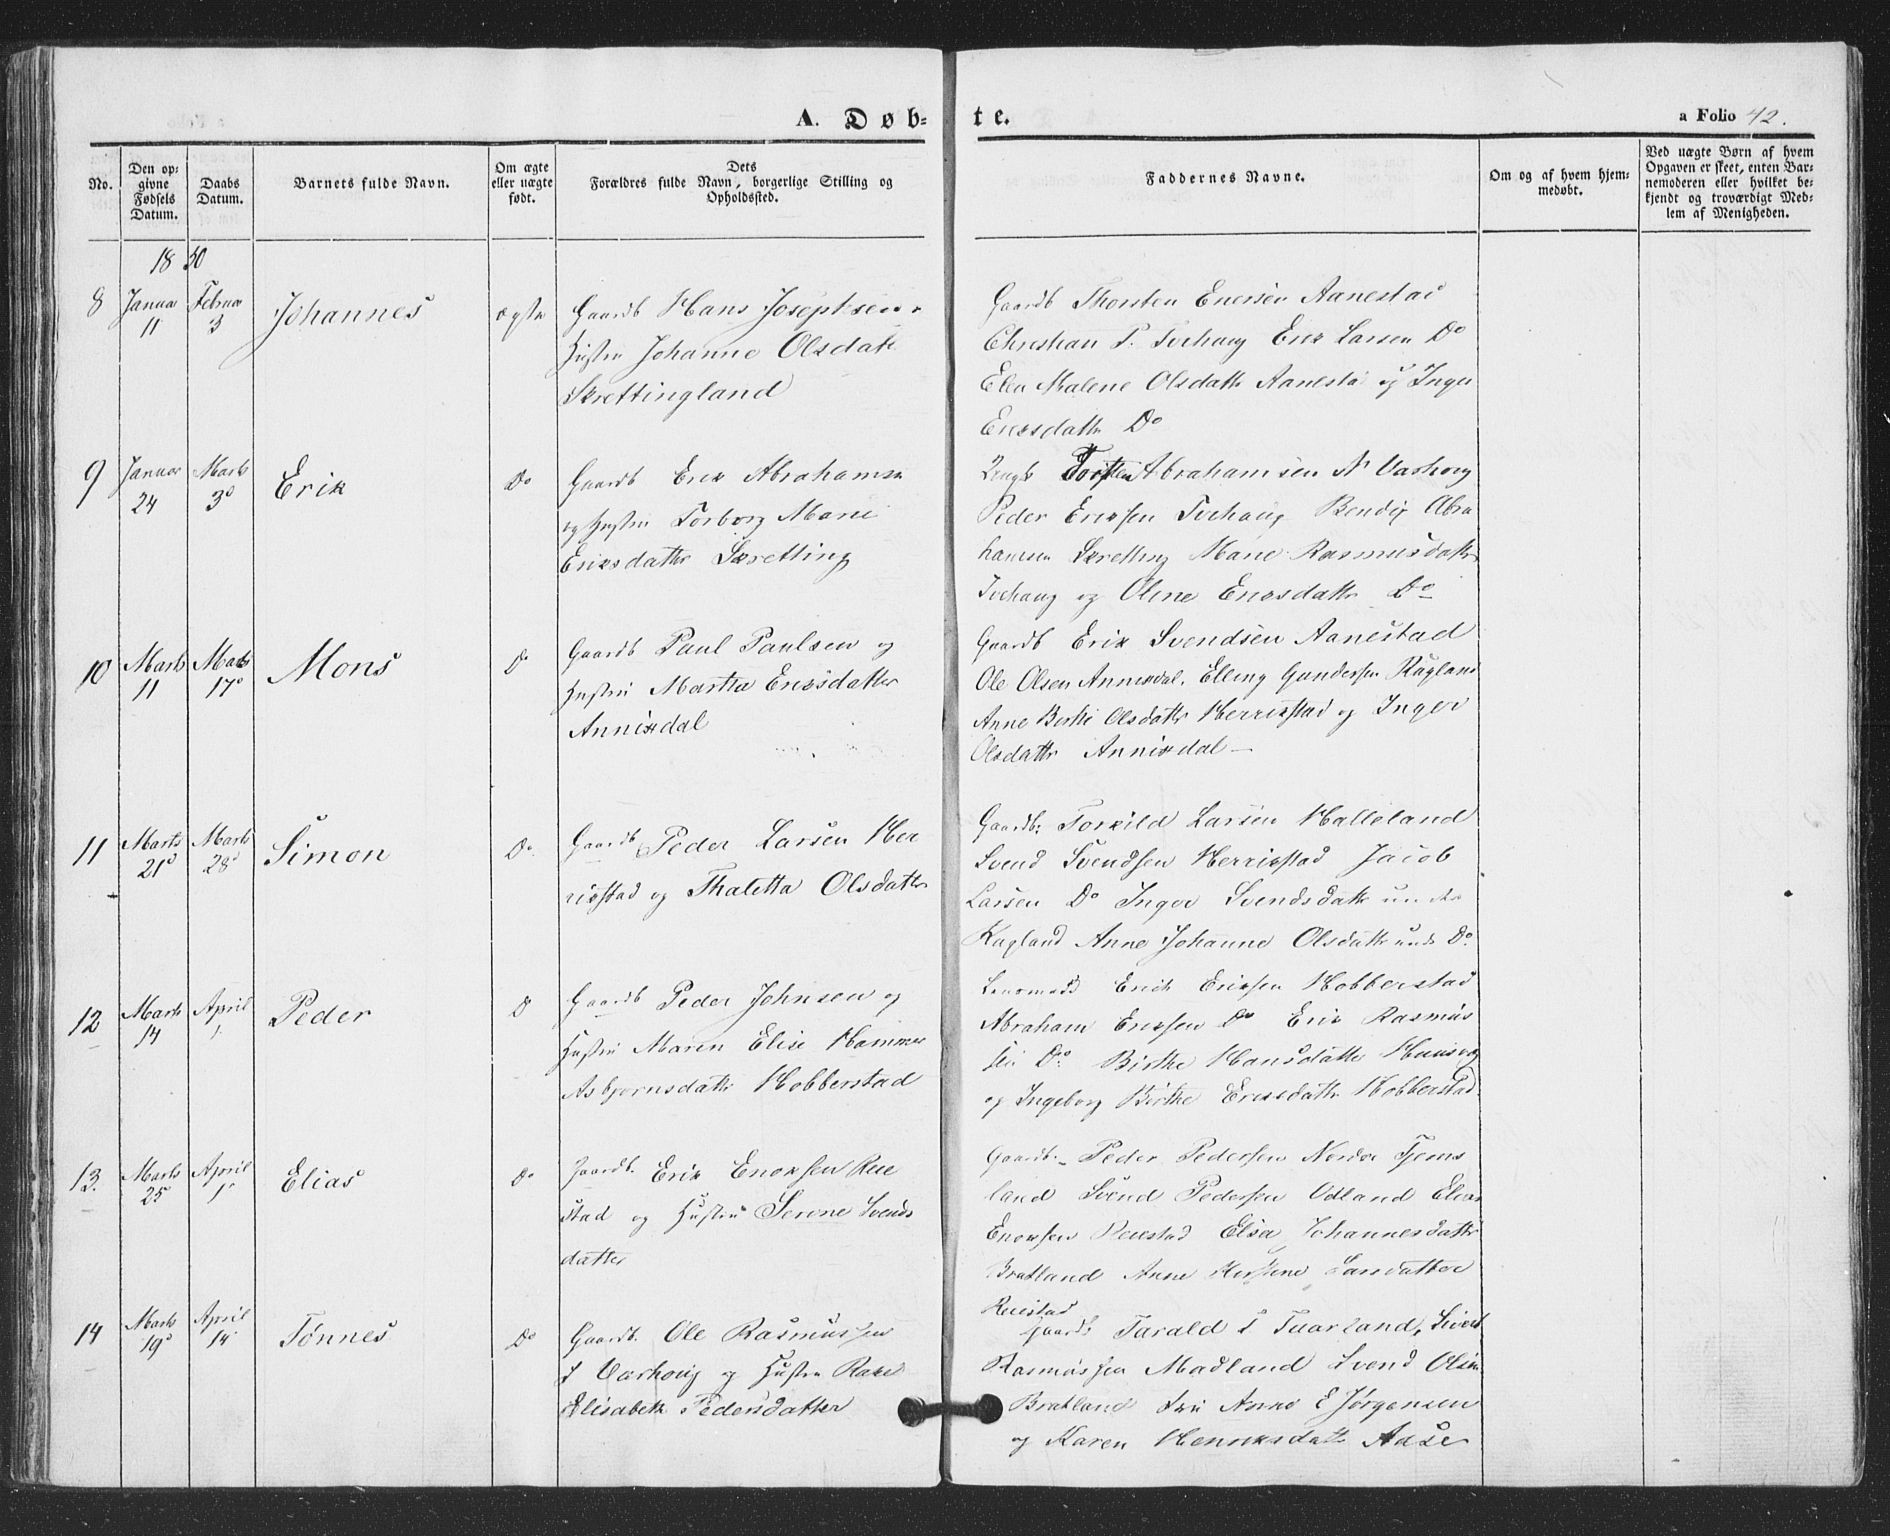 A. Døb=
te.
a Folio 42.
No.
Den op=
givne
Fødsels
Datum.
Daabs
Datum.
Barnets fulde Navn.
Om ægte
eller uægte
født.
Dets
Forældres fulde Navn, borgerlige Stilling og
Opholdssted.
Faddernes Navne.
Om og af hvem hjem=
medøbt.
Ved uægte Børn af hvem
Opgaven er skeet, enten Bar=
nemoderen eller hvilket be=
kjendt og troværdigt Med=
lem af Menigheden.
1850
8
Januar
11
Februar
3
Johannes
ægte
Gaardb Hans Josephsen
Hustru Johanne Olsdatt
Skrettingland
Gaardb Thorsten Enersen Aanestad
Christian P. Tvehaug Erik Larsen Do
Elen Malene Olsdattr Aanestad og Inger
Ericsdattr Do
9
Januar
24
Marts
3d
Erik
Do
Gaardb Erik Abrahamsen
og Hustru Torborg Marie
Eriksdatter Skretting
Torsten Abrahamsen N Varhoug
Peder Eriksen Tvehaug Bendix Abra
hamsen Skretting Marie Rasmusdattr
Tvehaug og Oline Ericsdattr Do
10
Marts
11
Marts
17d
Mons
Do
Gaardb Paul Paulsen og
Hustru Martha Ericsdatter
Annixdal
Gaardb Erik Svendsen Aanestad
Ole Olsen Annixdal. Elling Gundersen Ragland
Anne Berthe Olsdattr Herrikstad og Inger
Olsdattr Annixdal
11
Marts
21d
Marts
28d
Simon
Do
Gaardb Peder Larsen Her
rikstad og Thaletta Olsdattr
Gaardb: Torkild Larsen Halleland
Svend Svendsen Herrikstad Jacob
Larsen Do Inger Svendsdattr
Ragland Anne Johanne Olsdattr Do
12
Marts
14
April
1
Peder
Do
Gaardb Peder Johnsen og
Hustru Maren Elise Hammer
Asbjørnsdattr Hobberstad
Lensmand Erich Eriksen Hobberstad
Abraham Eriksen Do Erik Rasmus
sen Do Birthe Hansdatter
og Ingeborg Birthe Ericsdattr Hobberstad
13.
Marts
25
April
1
Elias
Do
Gaardb. Erik Enoksen Reie
stad og Hustru Serine Svends
datter
Gaardb. Peder Pedersen Nordre Tjems
land Svend Pedersen Odland Elias
Enoksen Reiestad Elsa Johannesdattr
Bratland Anne Kirstine Larsdatter
Reiestad
14
Marts
19d
April
14
Tønnes
Do
Gaardb. Ole Rasmussen
S Varhoug og Hustru Rakel
Elisabeth Pedersdatter
Gaardb Tarald T Taarland, Sivert
Rasmussen Madland Svend Olsen
Bratland Anne E Jørgensen
og Karen Henriksdattr Adse